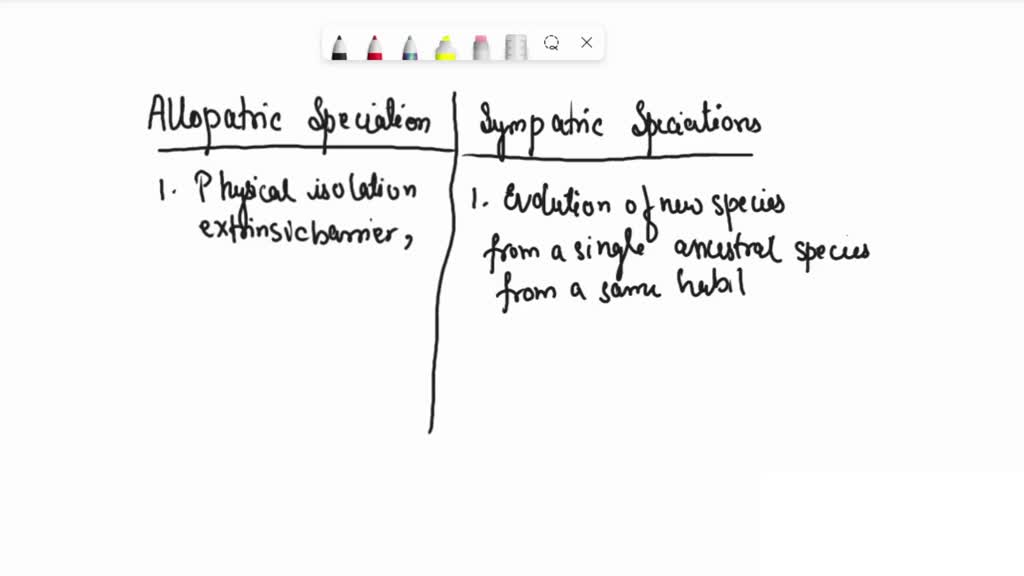 Allopatric Speciation
1. Physical isolation
extrinsic barrier,
Sympatric Speciations
1. Evolution of new species
from a single ancestral species
from a same habit